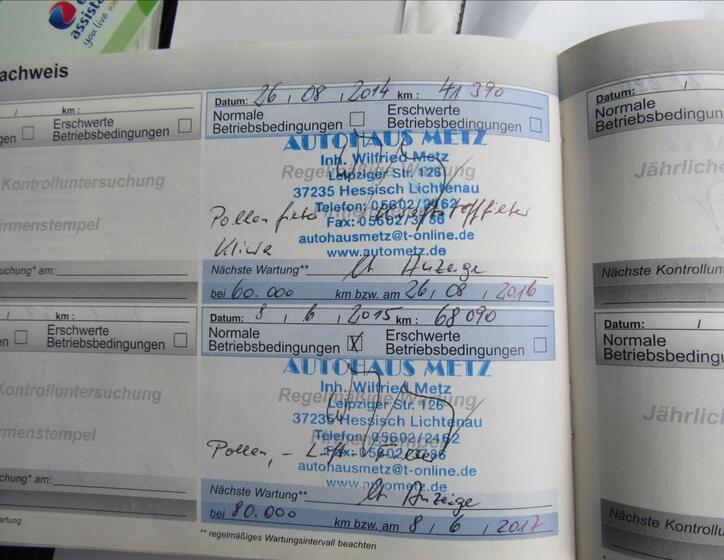 assist
you live
achweis
/ km :
Erschwerte
Betriebsbedingungen
gen
Kontrolluntersuchung
irmenstempel
suchung* am:
Datum: 26 , 08 , 2014 km : 41 390
Normale
Betriebsbedingungen
Erschwerte
Betriebsbedingungen
AUTOHAUS METZ
Inh. Wilfried Metz
Regelmäßige Wartung
Leipziger Str. 126
37235 Hessisch Lichtenau
Telefon: 05602/2462
Pollenfilter Kraftstofffilter
Fax: 05602/3786
Klima
autohausmetz@t-online.de
www.autometz.de
Nächste Wartung** lt Anzeige
bei 60.000 km bzw. am 26 , 08 , 2016
/ km :
Erschwerte
Betriebsbedingungen
gen
Kontrolluntersuchung
irmenstempel
suchung* am:
artung
Datum: 8 , 6 , 2015 km : 68 090
Normale
Betriebsbedingungen X
Erschwerte
Betriebsbedingungen
AUTOHAUS METZ
Inh. Wilfried Metz
Regelmäßige Wartung
Leipziger Str. 126
37235 Hessisch Lichtenau
Telefon: 05602/2462
Pollen, - Luft
autohausmetz@t-online.de
www.autometz.de
Nächste Wartung** lt Anzeige
bei 80.000 km bzw. am 8 , 6 , 2017
** regelmäßiges Wartungsintervall beachten
Datum: /
Normale
Betriebsbedingung
Jährliche
Nächste Kontrollun
Datum: /
Normale
Betriebsbedingu
Jährlich
Nächste Kontrollu